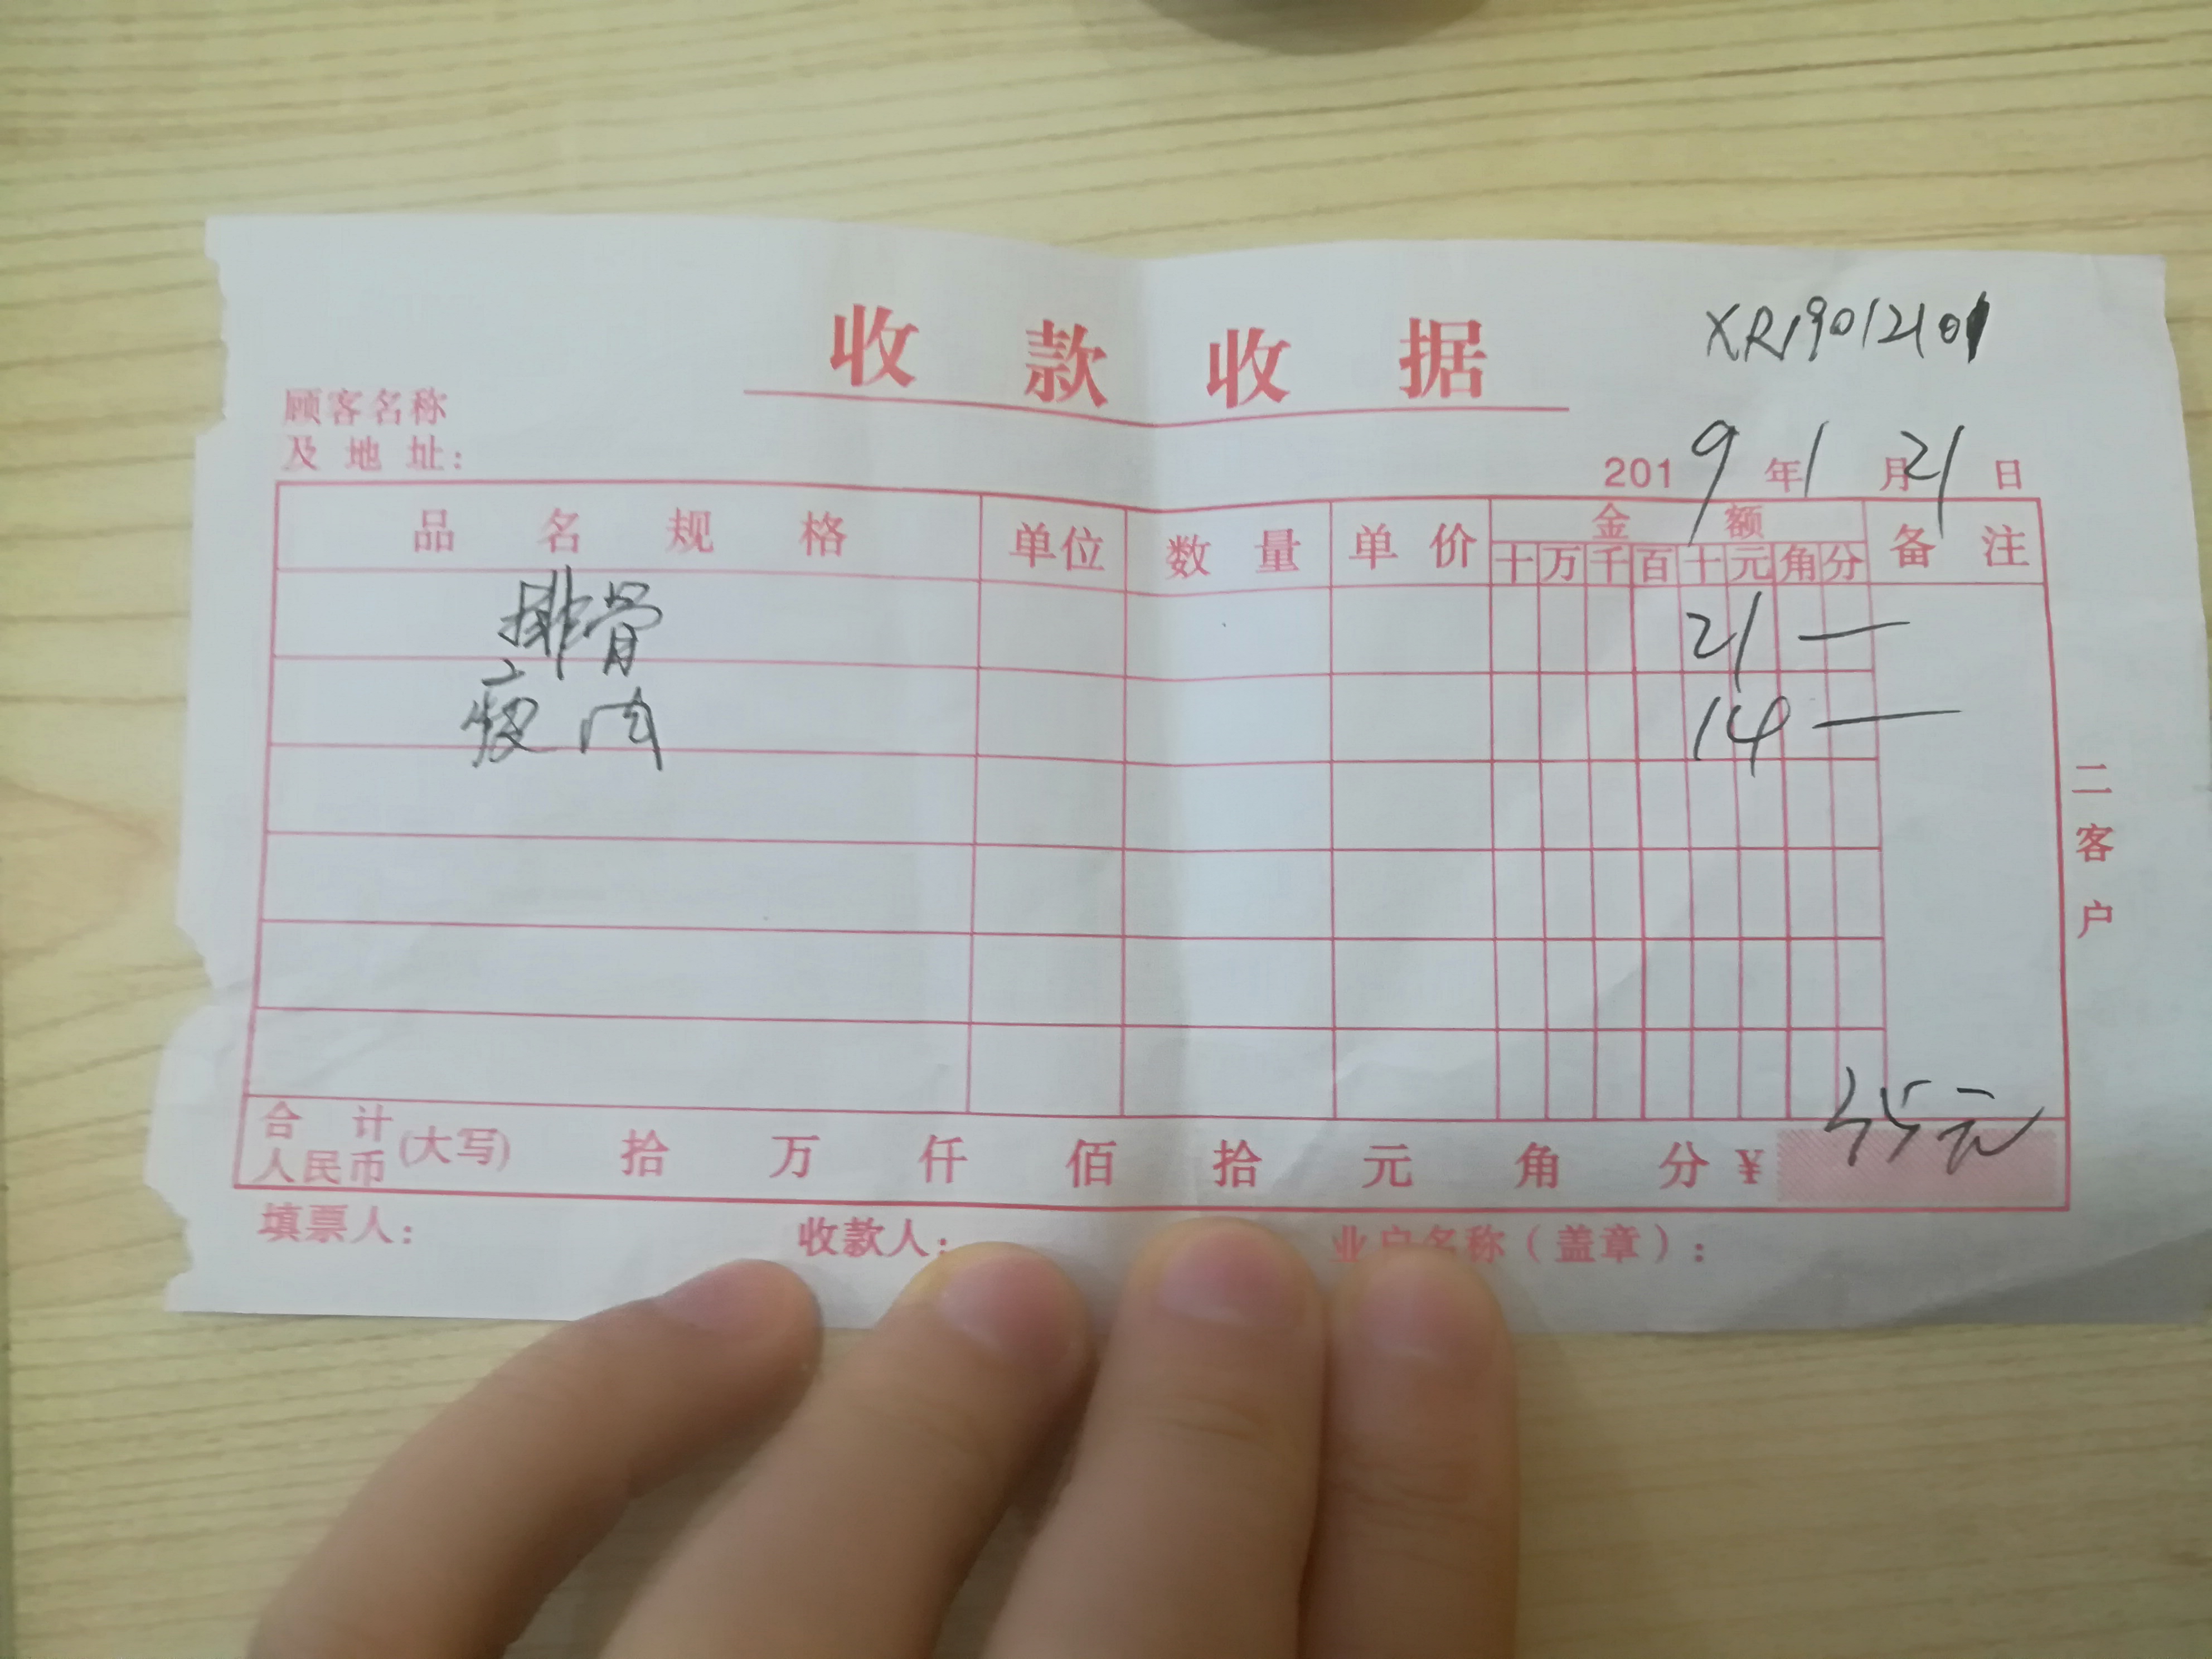 收款收据
XR19012101
顾客名称
及地址:
2019年1月21日
品名规格 单位 数量 单价 金额 备注
十 万 千 百 十 元 角 分
排骨 21 —
瘦肉 14 —
二客户
合计
人民币 (大写) 拾 万 仟 佰 拾 元 角 分 ¥ 35元
填票人: 收款人: 业户名称(盖章):